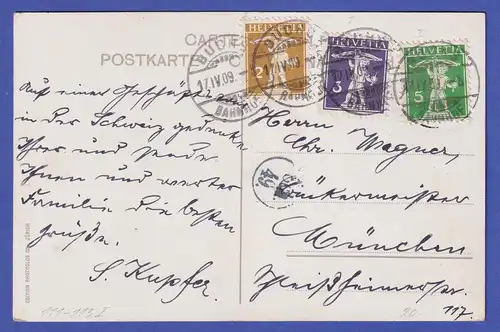 CARTE
POSTKARTE
HELVETIA
2
HELVETIA
3
HELVETIA
5
17.IV.09
BAHNHOF
Auf einer Geschäftsreise
in der Schweiz gedenke
Ihrer und sende
Ihnen und werter
Familie die besten
Grüße.
S. Kupfer
Herrn
Chr. Wagner,
München
Schleißheimerstr.
117.
111-113 I